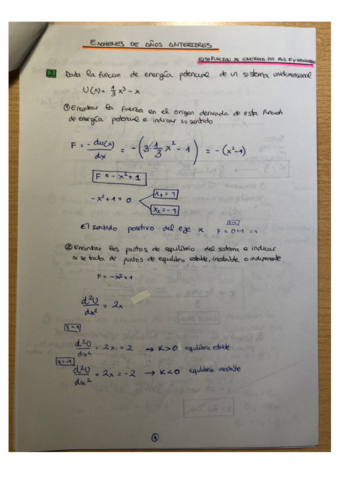 EXAMENES DE AÑOS ANTERIORES
2 Dada la funcion de energía potencial de un sistema unidimensional
U(x) = 1/3 x³ - x
① Encontrar la fuerza en el origen derivada de esta función
de energía potencial e indicar su sentido
F = -du(x)/dx = -(3 1/3 x² - 1) = -(x²-1)
F = -x² + 1
-x²+1 = 0 x₁ = 1
x₂ = -1
El sentido positivo del eje x F = 0+1 = 1
② Encontrar los puntos de equilibrio del sistema e indicar
si se trata de puntos de equilibrio estable, inestable o indiferente
F = -x²+1
d²U/dx² = 2x
x = 1
d²U/dx² = 2x = 2 → K>0 equilibrio estable
x = -1
d²U/dx² = 2x = -2 → K<0 equilibrio inestable